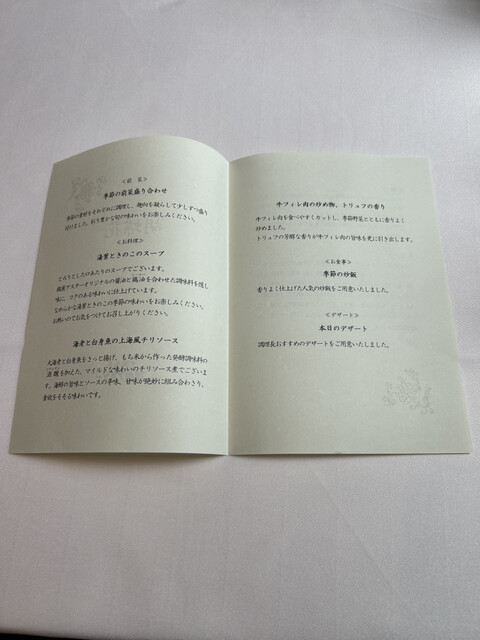 <前 菜>
季節の前菜盛り合わせ
季節の素材をそれぞれに調理し、趣向を凝らして少しずつ盛り
付けました。彩り豊かな旬の味わいをお楽しみください。
<お料理>
海胆ときのこのスープ
とろりとした口あたりのスープでございます。
銀座アスターオリジナルの醤油と鶏油を合わせた調味料を隠し
味に、コクのある味わいに仕上げています。
なめらかな海胆ときのこの季節の味わいをお楽しみください。
お熱いのでお気をつけてお召し上がりください。
海老と白身魚の上海風チリソース
大海老と白身魚をさっと揚げ、もち米から作った発酵調味料の
酒醸を加えた、マイルドな味わいのチリソース煮でございま
す。海鮮の旨味とソースの辛味、甘味が絶妙に組み合わさり、
食欲をそそる味わいです。
牛フィレ肉の炒め物、トリュフの香り
牛フィレ肉を食べやすくカットし、季節野菜とともに香りよく
炒めました。
トリュフの芳醇な香りが牛フィレ肉の旨味を更に引き出します。
<お食事>
季節の炒飯
香りよく仕上げた人気の炒飯をご用意いたしました。
<デザート>
本日のデザート
調理長おすすめのデザートをご用意いたしました。